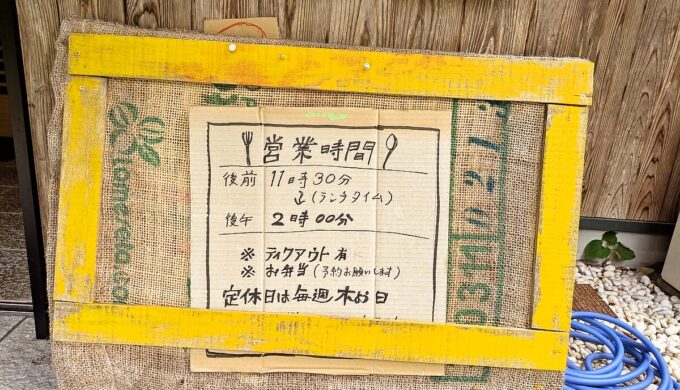 営業時間
後前 11時30分
(ランチタイム)
後午 2時00分
※ テイクアウト 有
※ お弁当 (予約お願いします)
定休日は毎週木よう日